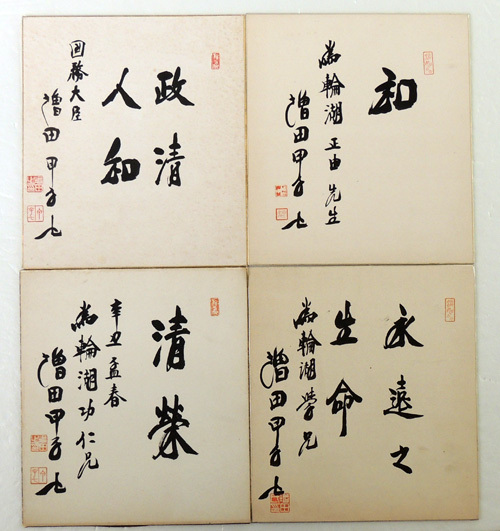 政清
人和
国務大臣
增田甲子七
和
為輪湖正由先生
增田甲子七
清榮
辛丑孟春
為輪湖功仁兄
增田甲子七
永遠之
生命
為輪湖學兄
增田甲子七